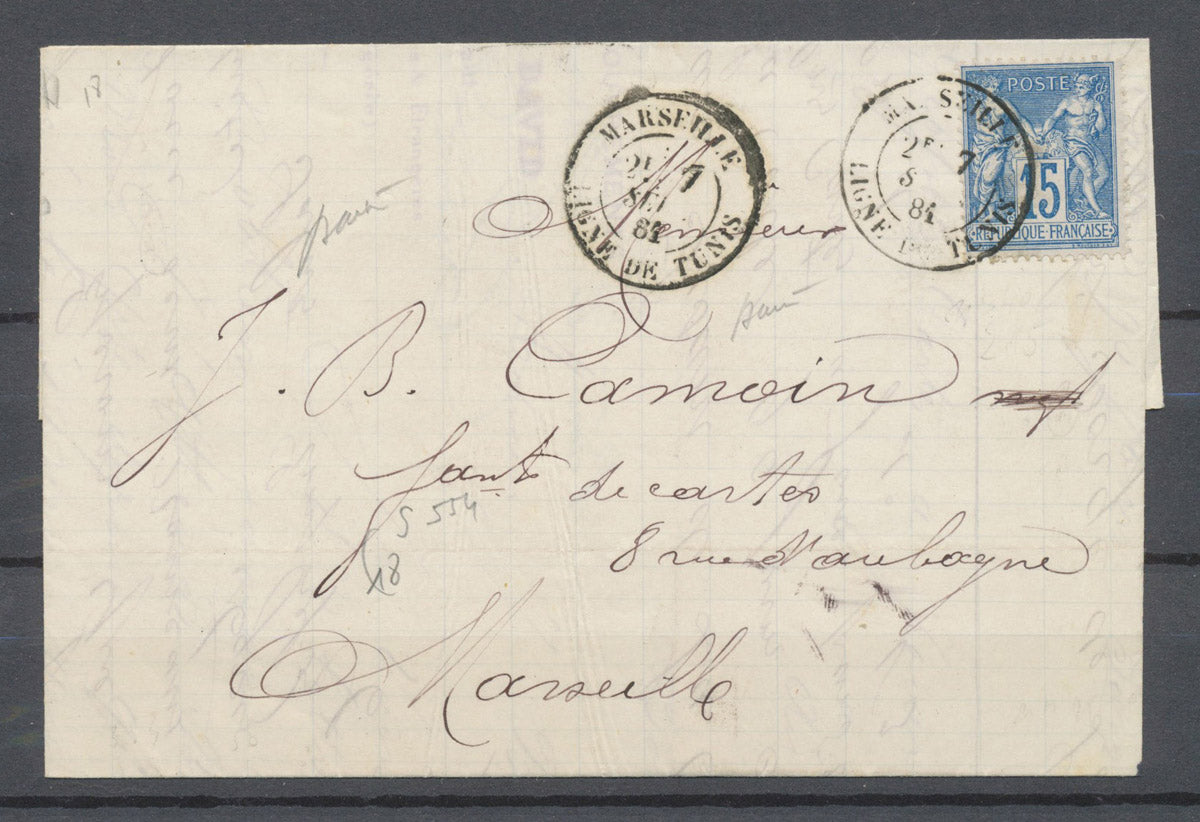 18
POSTE
15
RÉPUBLIQUE-FRANÇAISE
MARSEILLE
7
84
LIGNE DE TUNIS
MARSEILLE
2E 7
84
LIGNE DE TUNIS
Monsieur
J. B. Camoin
fant de cartes
8 rue d'aubagne
Marseille
S 554
18